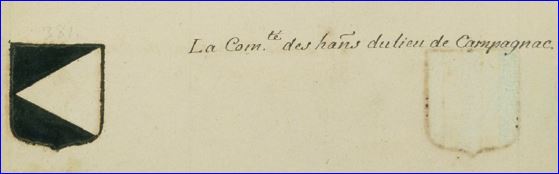 381.
La Com.té des hañs du lieu de Campagnac.